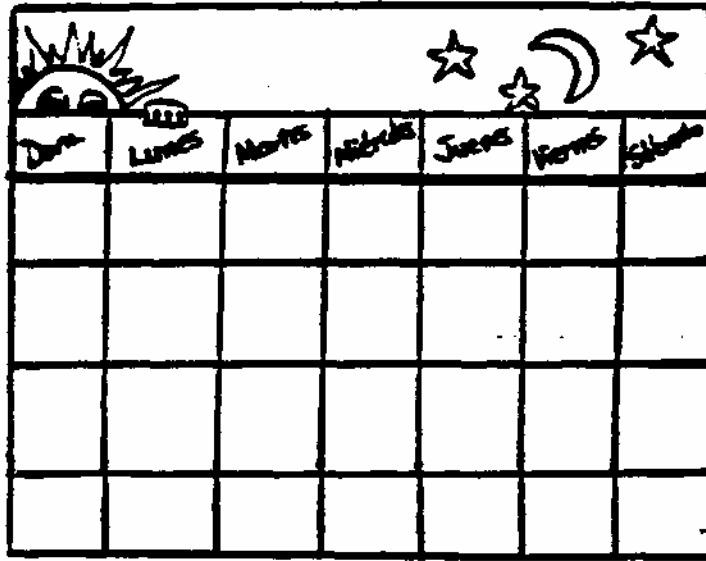 Dom Lunes Martes Miércoles Jueves Viernes Sábado